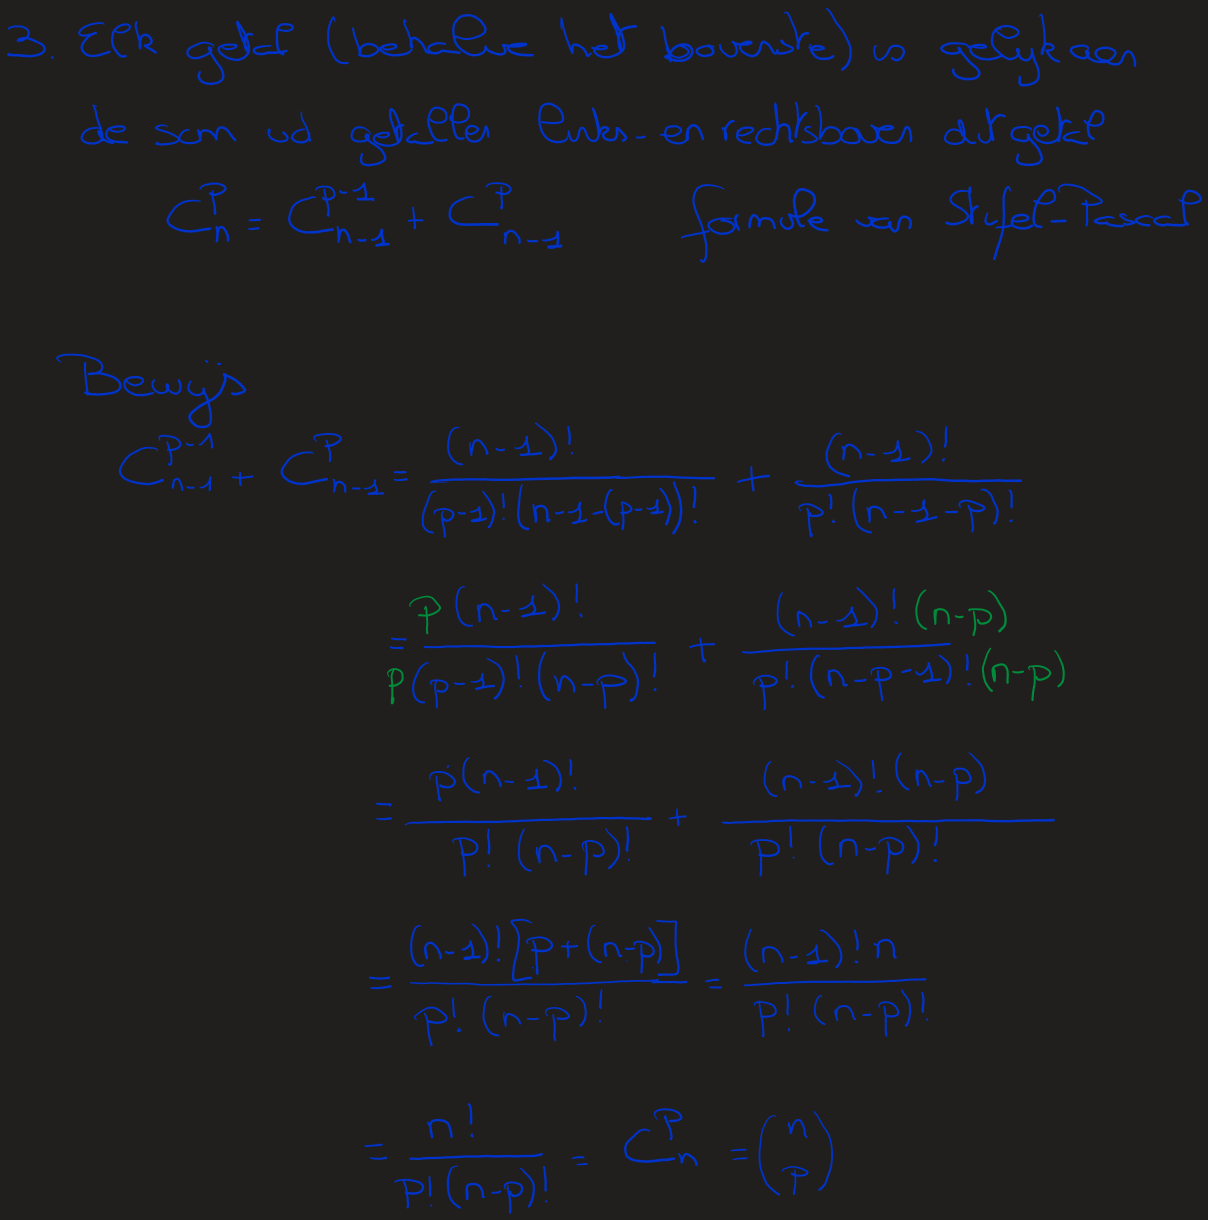 3. Elk getal (behalve het bovenste) is gelijk aan
de som vd getallen links- en rechtsboven dit getal
C_n^p = C_{n-1}^{p-1} + C_{n-1}^p formule van Stifel-Pascal
Bewijs
C_{n-1}^{p-1} + C_{n-1}^p = \frac{(n-1)!}{(p-1)!(n-1-(p-1))!} + \frac{(n-1)!}{p!(n-1-p)!}
= \frac{p(n-1)!}{p(p-1)!(n-p)!} + \frac{(n-1)!(n-p)}{p!(n-p-1)!(n-p)}
= \frac{p(n-1)!}{p!(n-p)!} + \frac{(n-1)!(n-p)}{p!(n-p)!}
= \frac{(n-1)![p+(n-p)]}{p!(n-p)!} = \frac{(n-1)!n}{p!(n-p)!}
= \frac{n!}{p!(n-p)!} = C_n^p = \binom{n}{p}